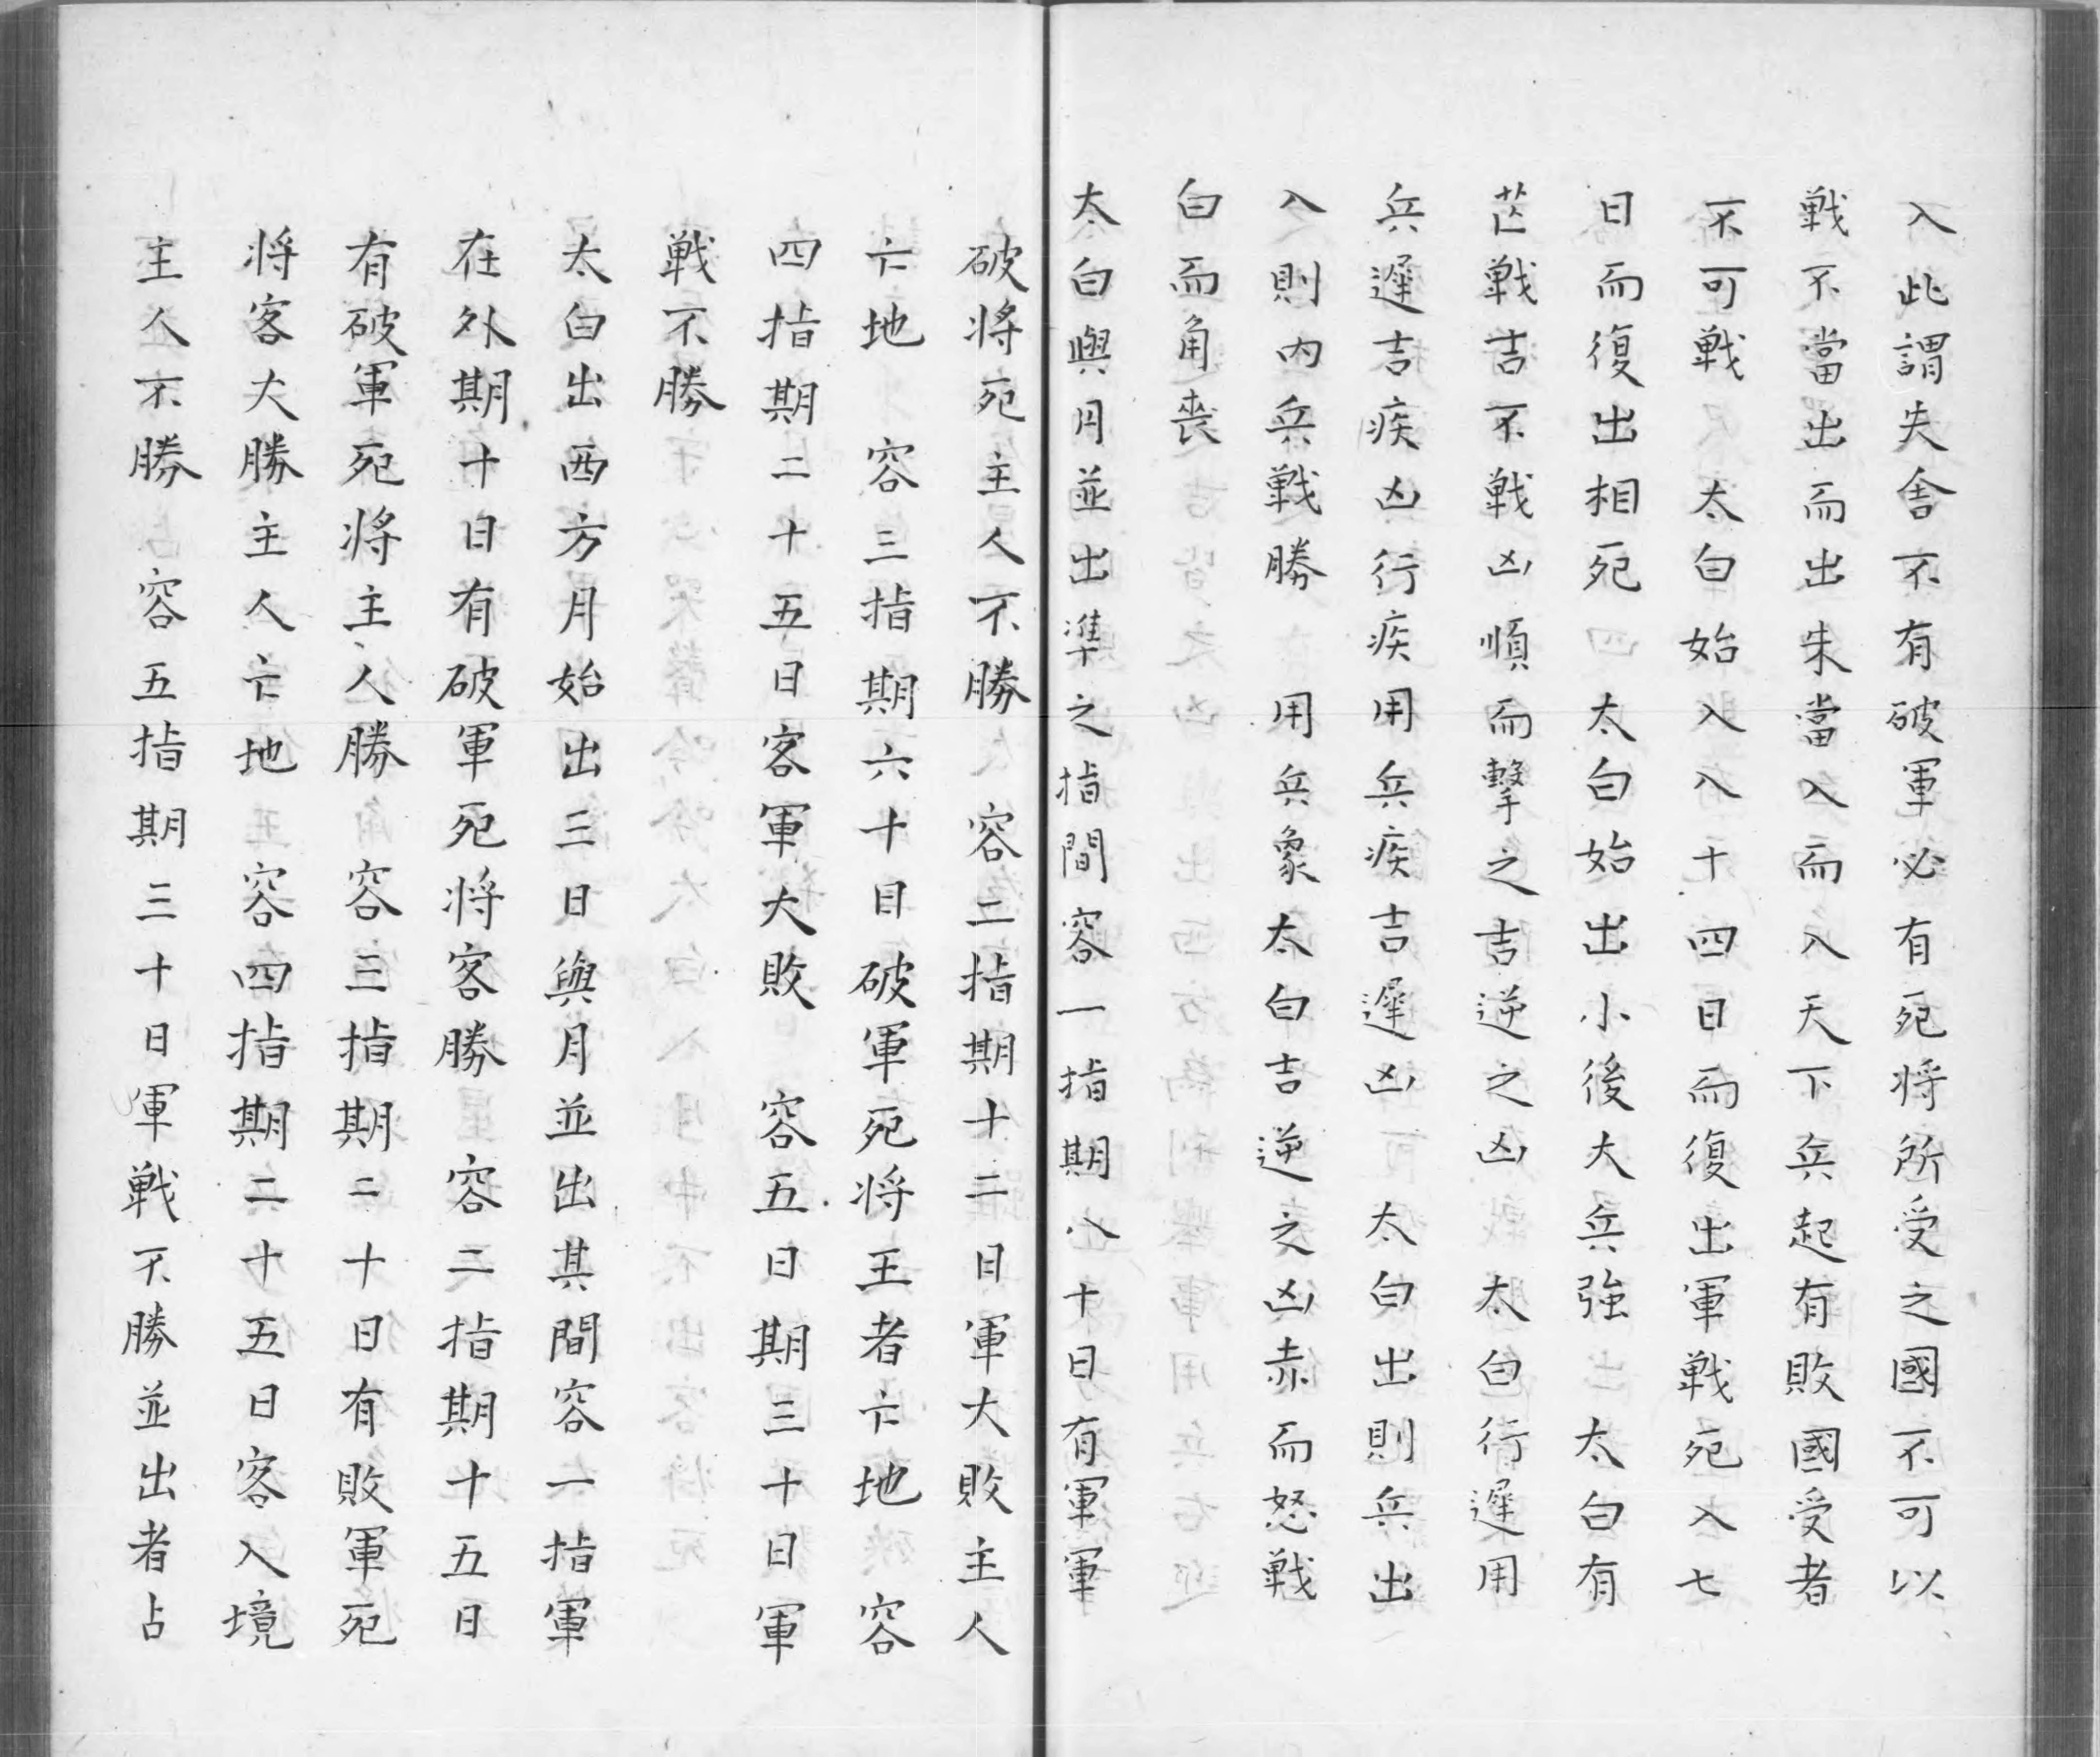 入此謂失舍不有破軍必有死将所受之國不可以
戦不當出而出朱當入而入天下兵起有敗國受者
不可戦　太白始入入十四日而復出軍戦死入七
日而復出相死　太白始出小後大兵強　太白有
芒戦吉不戦凶順而擊之吉逆之凶　太白行遲用
兵遲吉疾凶行疾用兵疾吉遲凶　太白出則兵出
入則内兵戦勝　用兵象太白吉逆之凶赤而怒戦
白而角喪
太白與月並出準之指間容一指期八十日有軍軍
破将死主人不勝　容二指期十二日軍大敗主人
亡地　容三指期六十日破軍死将王者亡地　容
四指期二十五日客軍大敗　容五日期三十日軍
戦不勝
太白出西方月始出三日與月並出其間容一指軍
在外期十日有破軍死将客勝　容二指期十五日
有破軍死将主人勝　容三指期二十日有敗軍死
将客大勝主人亡地　容四指期二十五日客入境
主人不勝　容五指期三十日軍戦不勝並出者占